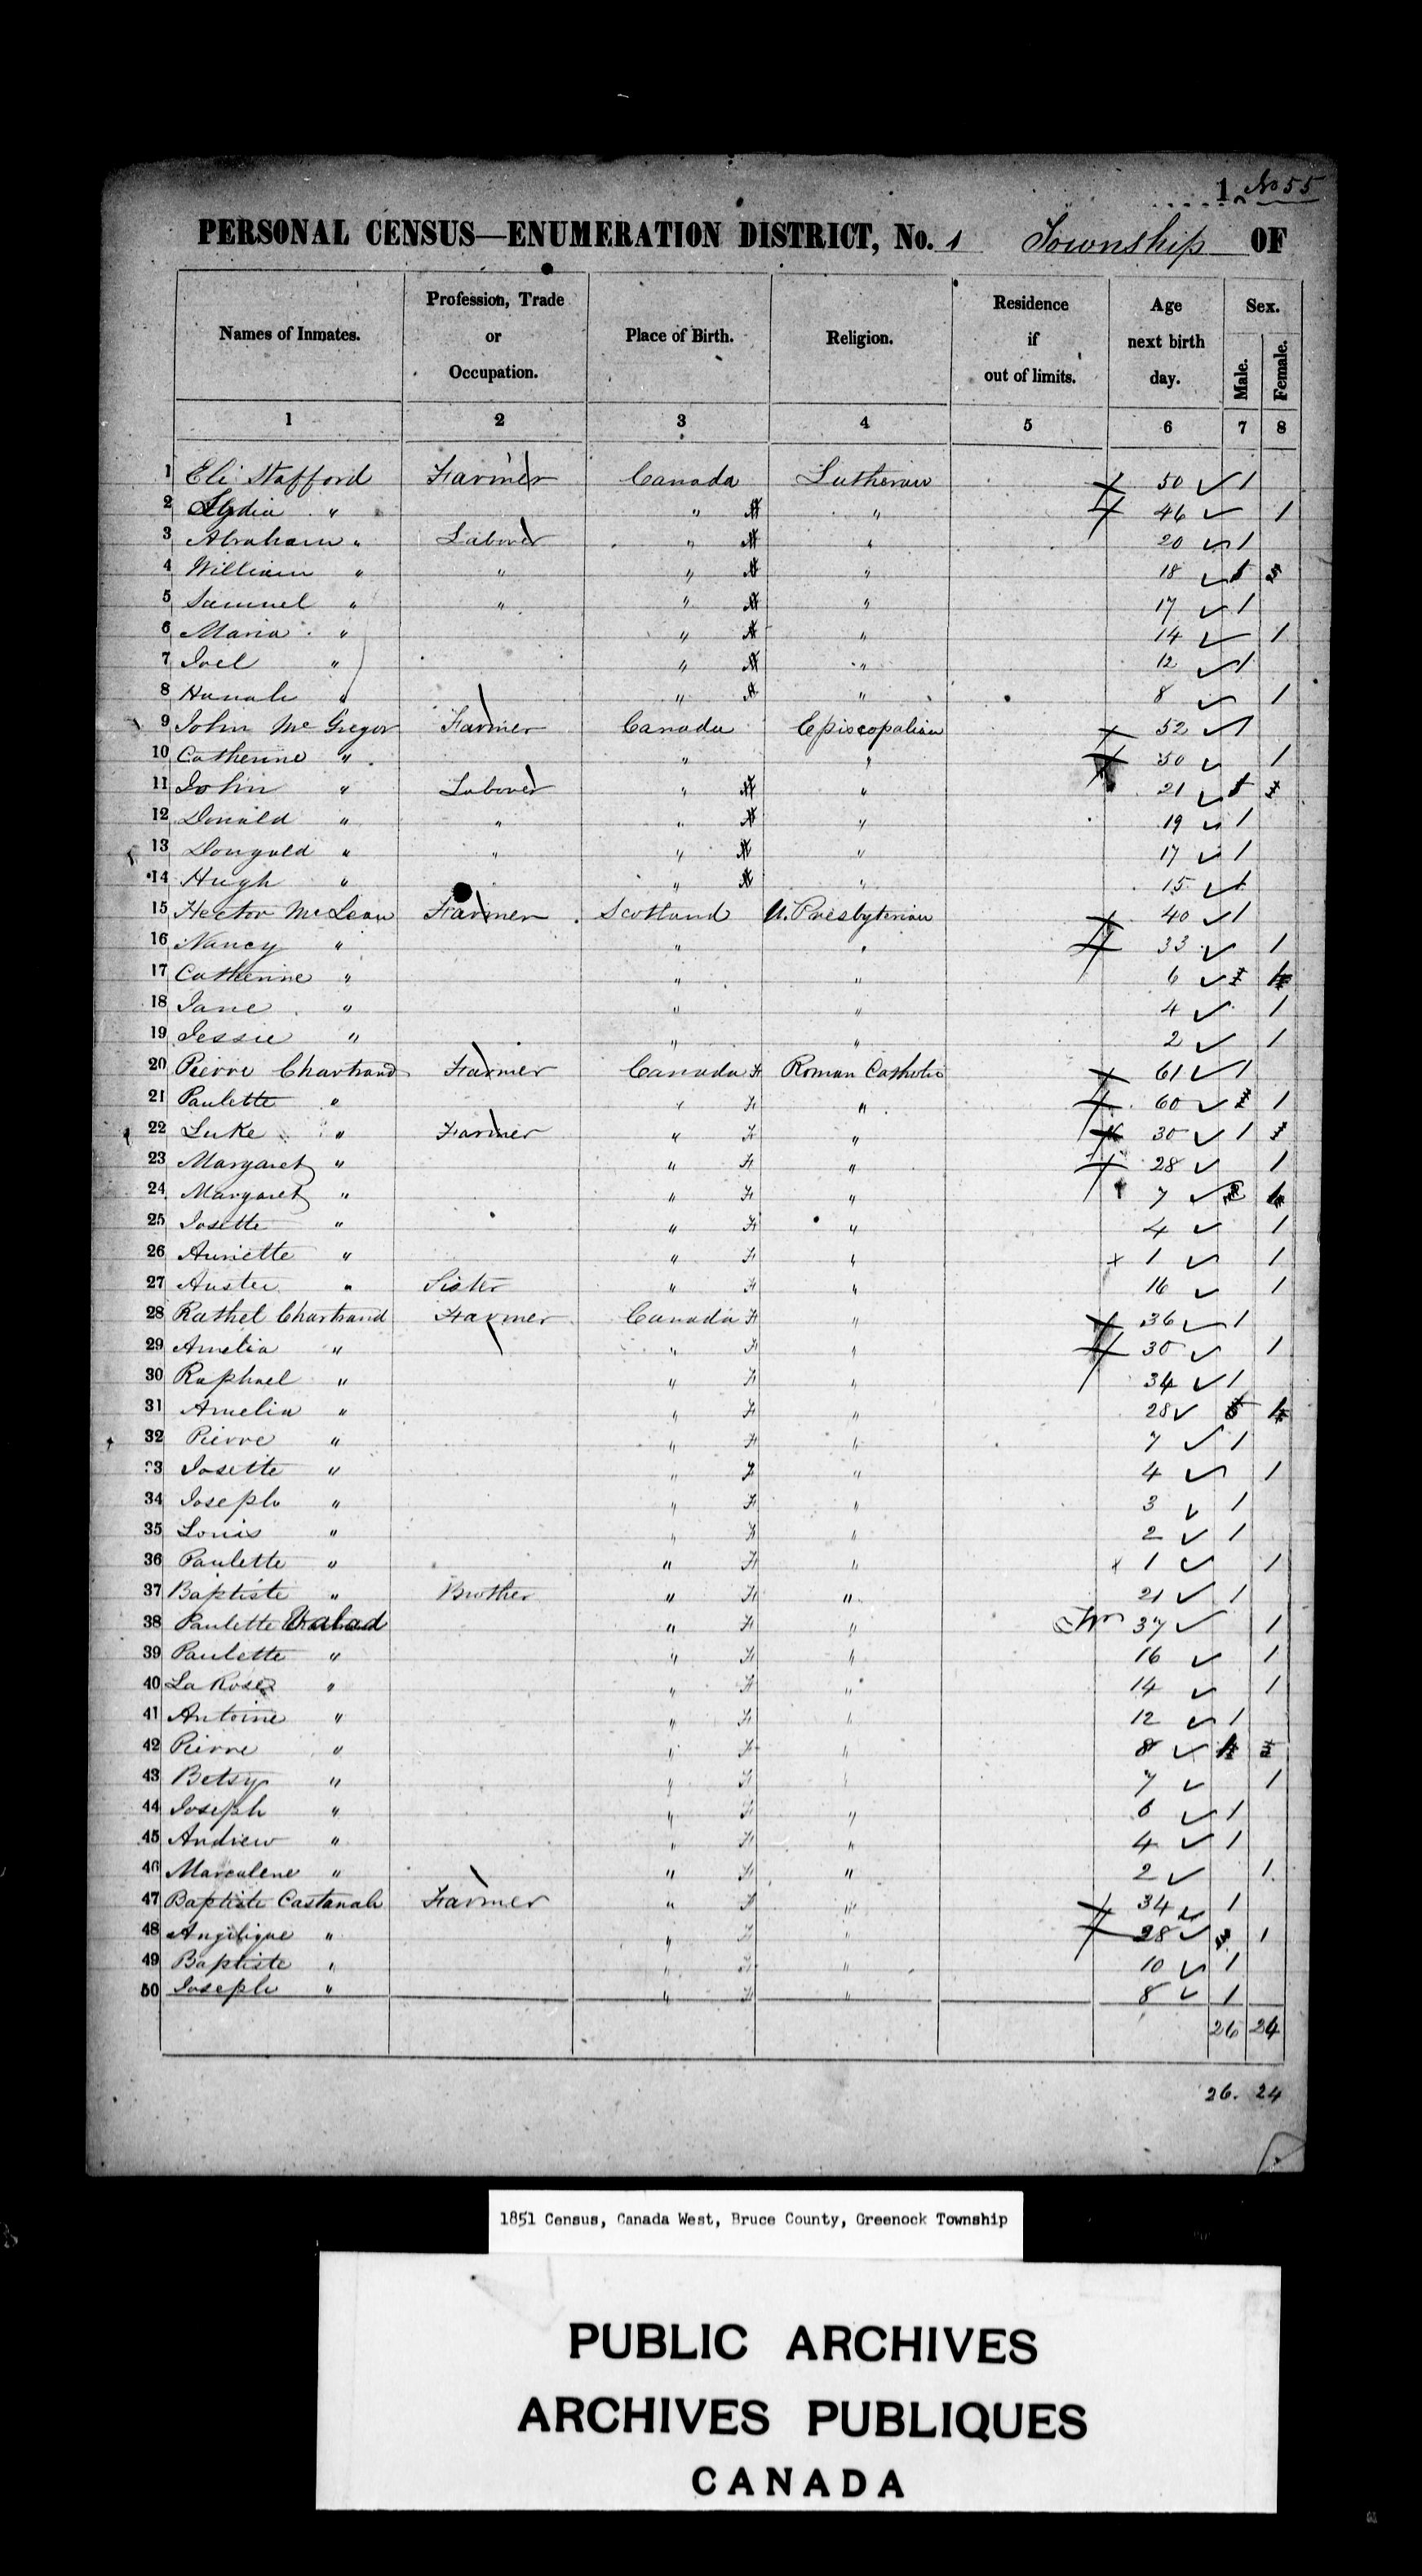 1 No 55
PERSONAL CENSUS—ENUMERATION DISTRICT, No. 1 Township OF
Names of Inmates. Profession, Trade or Occupation. Place of Birth. Religion. Residence if out of limits. Age next birth day. Sex. Male. Female.
1 2 3 4 5 6 7 8
1 Eli Stafford Farmer Canada Lutheran 50 1
2 Lydia " " " 46 1
3 Abraham " Laborer " " 20 1
4 William " " " " 18 1
5 Samuel " " " " 17 1
6 Maria " " " 14 1
7 Joel " " " 12 1
8 Hanah " " " 8 1
9 John McGregor Farmer Canada Episcopalian 52 1
10 Catherine " " " 50 1
11 John " Laborer " " 21 1
12 Donald " " " " 19 1
13 Dougald " " " " 17 1
14 Hugh " " " 15 1
15 Hector McLean Farmer Scotland U. Presbyterian 40 1
16 Nancy " " " 33 1
17 Catherine " " " 6 1
18 Jane " " " 4 1
19 Jessie " " " 2 1
20 Pierre Chartrand Farmer Canada F Roman Catholic 61 1
21 Paulette " " F " 60 1
22 Luke " Farmer " F " 30 1
23 Margaret " " F " 28 1
24 Margaret " " F " 7 1
25 Josette " " F " 4 1
26 Auriette " " F " 1 1
27 Auster " Sister " F " 16 1
28 Rathel Chartrand Farmer Canada F " 36 1
29 Amelia " " F " 30 1
30 Raphael " " F " 34 1
31 Amelia " " F " 28 1
32 Pierre " " F " 7 1
33 Josette " " F " 4 1
34 Joseph " " F " 3 1
35 Louis " " F " 2 1
36 Paulette " " F " 1 1
37 Baptiste " Brother " F " 21 1
38 Paulette " F " 37 1
39 Paulette " " F " 16 1
40 La Rose " " F " 14 1
41 Antoine " " F " 12 1
42 Pierre " " F " 8 1
43 Betsy " " F " 7 1
44 Joseph " " F " 6 1
45 Andrew " " F " 4 1
46 Marcalene " " F " 2 1
47 Baptiste Castanah Farmer " F " 34 1
48 Angelique " " F " 28 1
49 Baptiste " " F " 10 1
50 Joseph " " F " 8 1
26 24
26. 24
1851 Census, Canada West, Bruce County, Greenock Township
PUBLIC ARCHIVES
ARCHIVES PUBLIQUES
CANADA